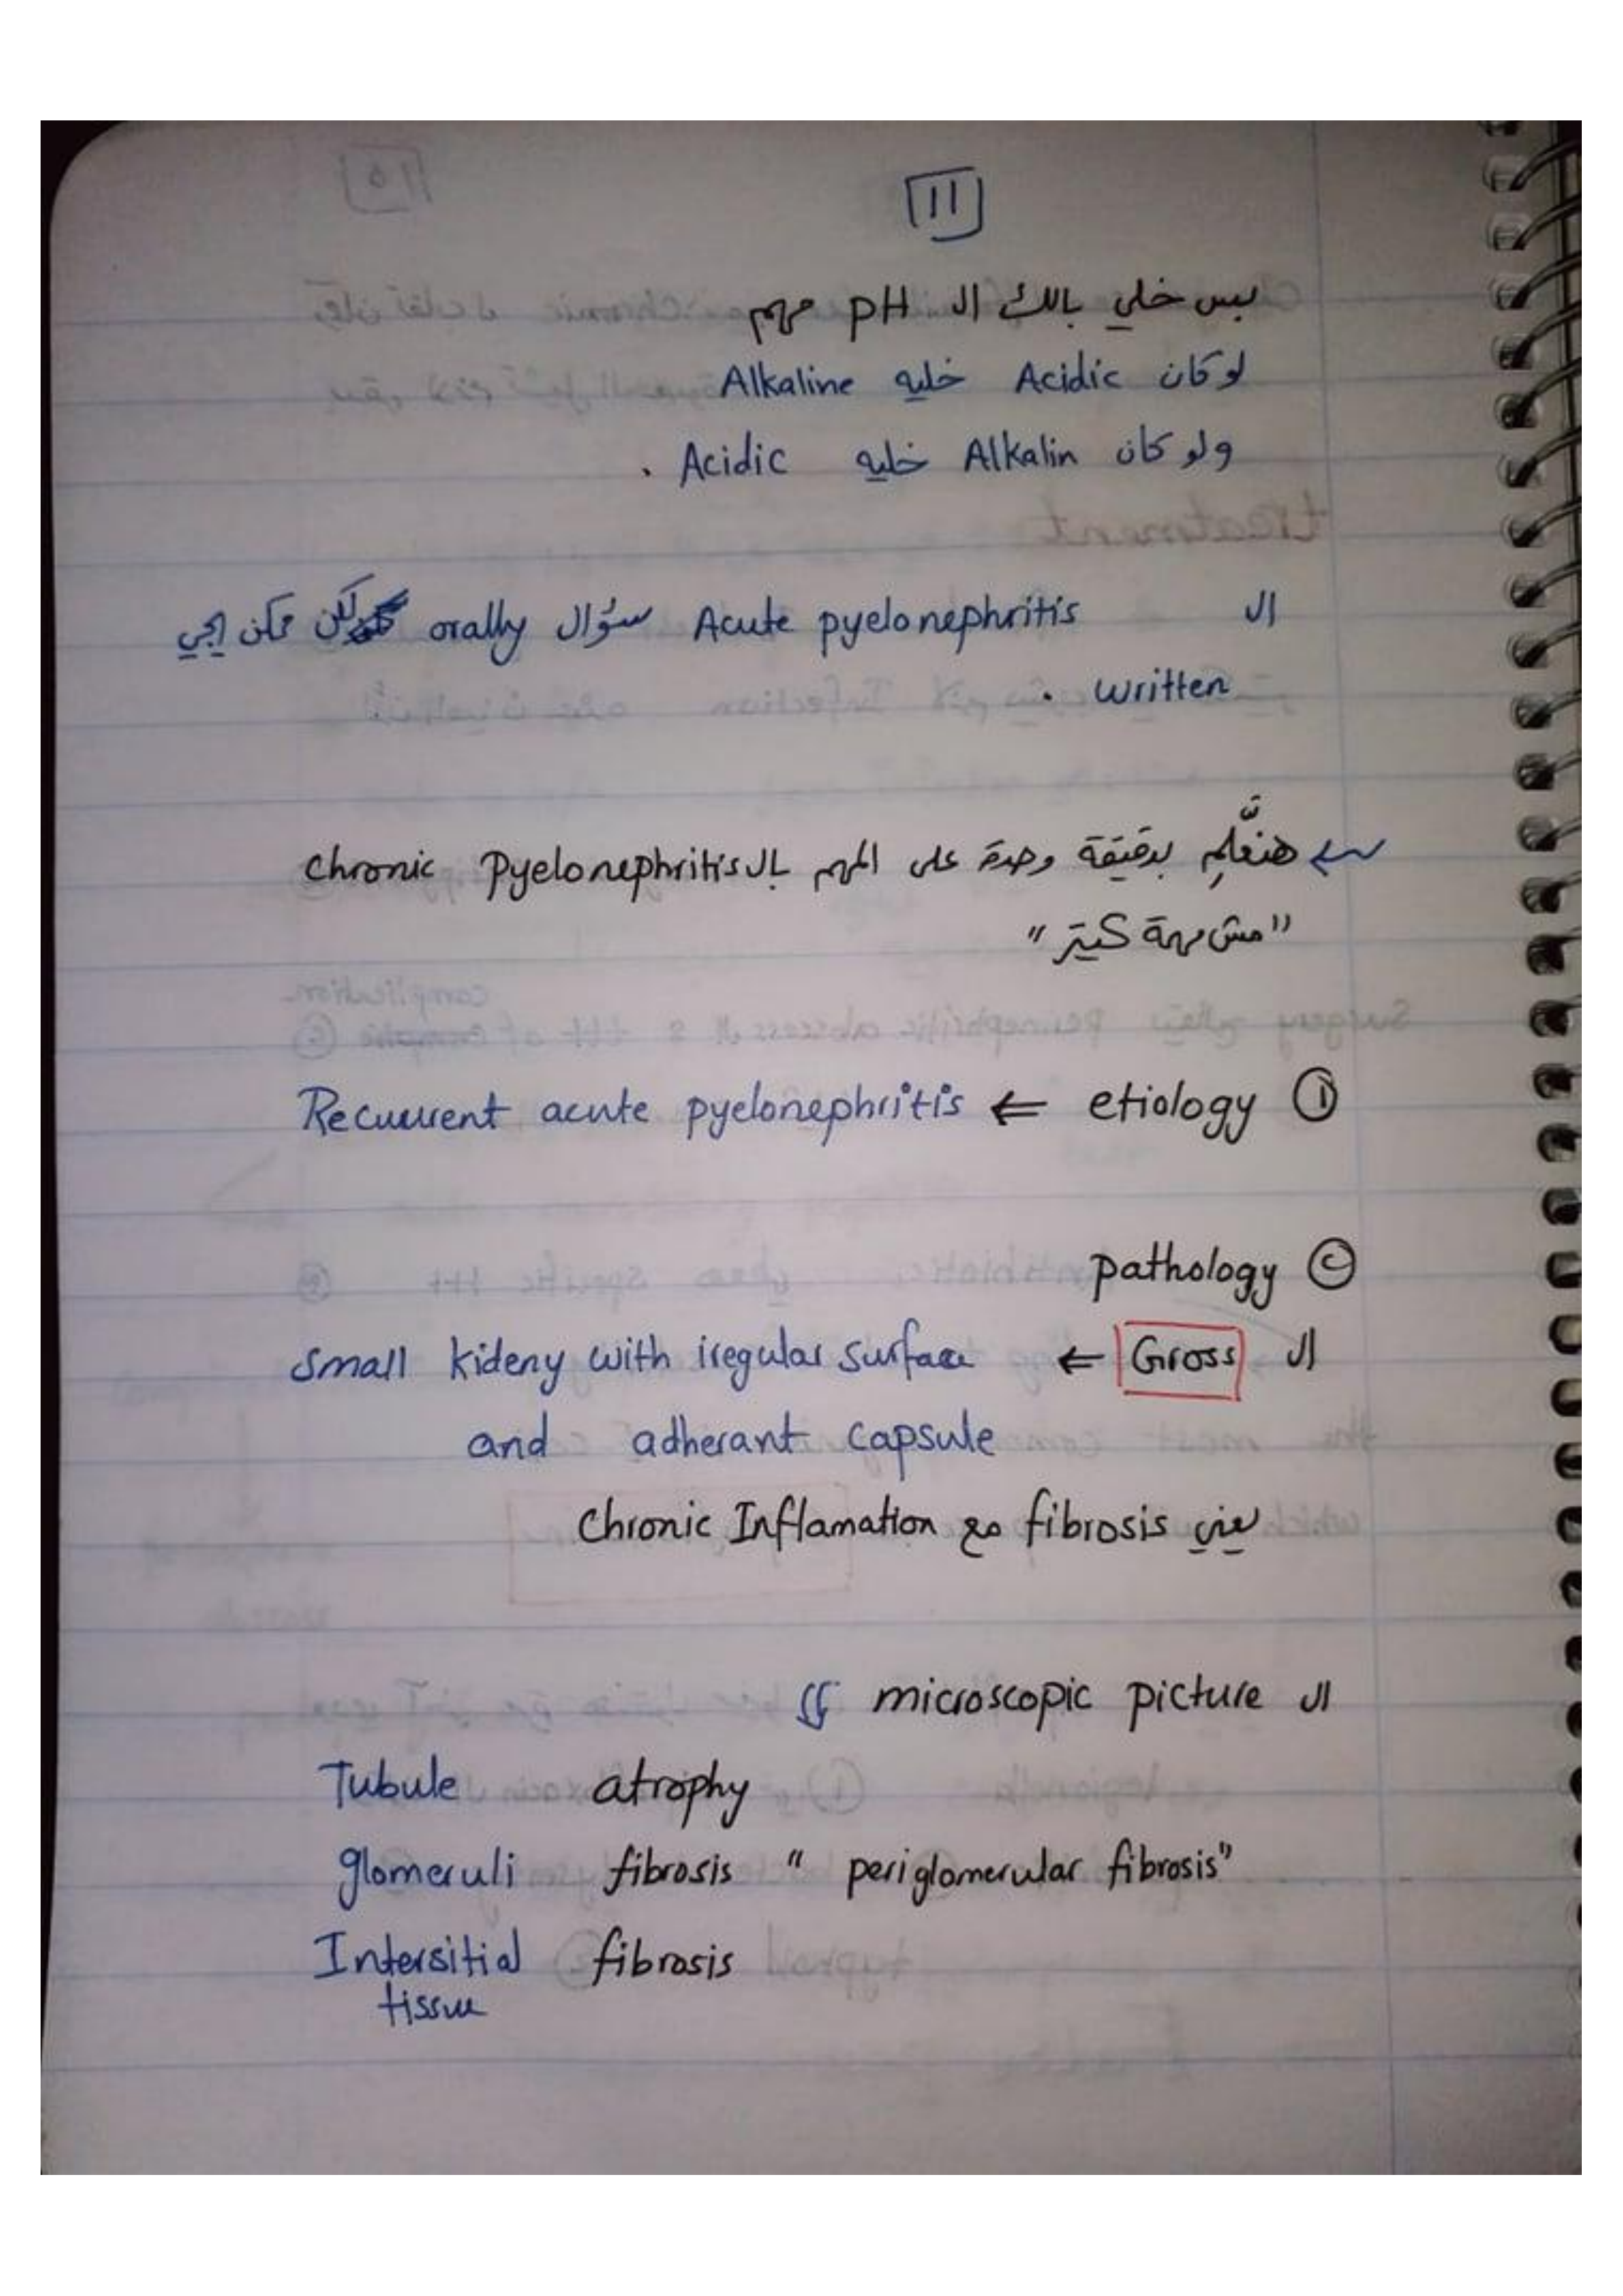 11
بس خلي بالك ال pH مهم
لو كان Acidic خليه Alkaline
ولو كان Alkalin خليه Acidic .
ال Acute pyelonephritis سؤال orally لكن ممكن يجي
written .
هنعلِّم بدقيقة وحدة على المهم بال chronic Pyelonephritis
"مش مهمة كتير"
① etiology ⇐ Recuurent acute pyelonephritis
② pathology
ال Gross ← small kideny with iregular surface
and adherant capsule
يعني fibrosis مع chronic Inflamation
ال microscopic picture
Tubule atrophy
glomeruli fibrosis " periglomerular fibrosis"
Intersitial fibrosis
tissue